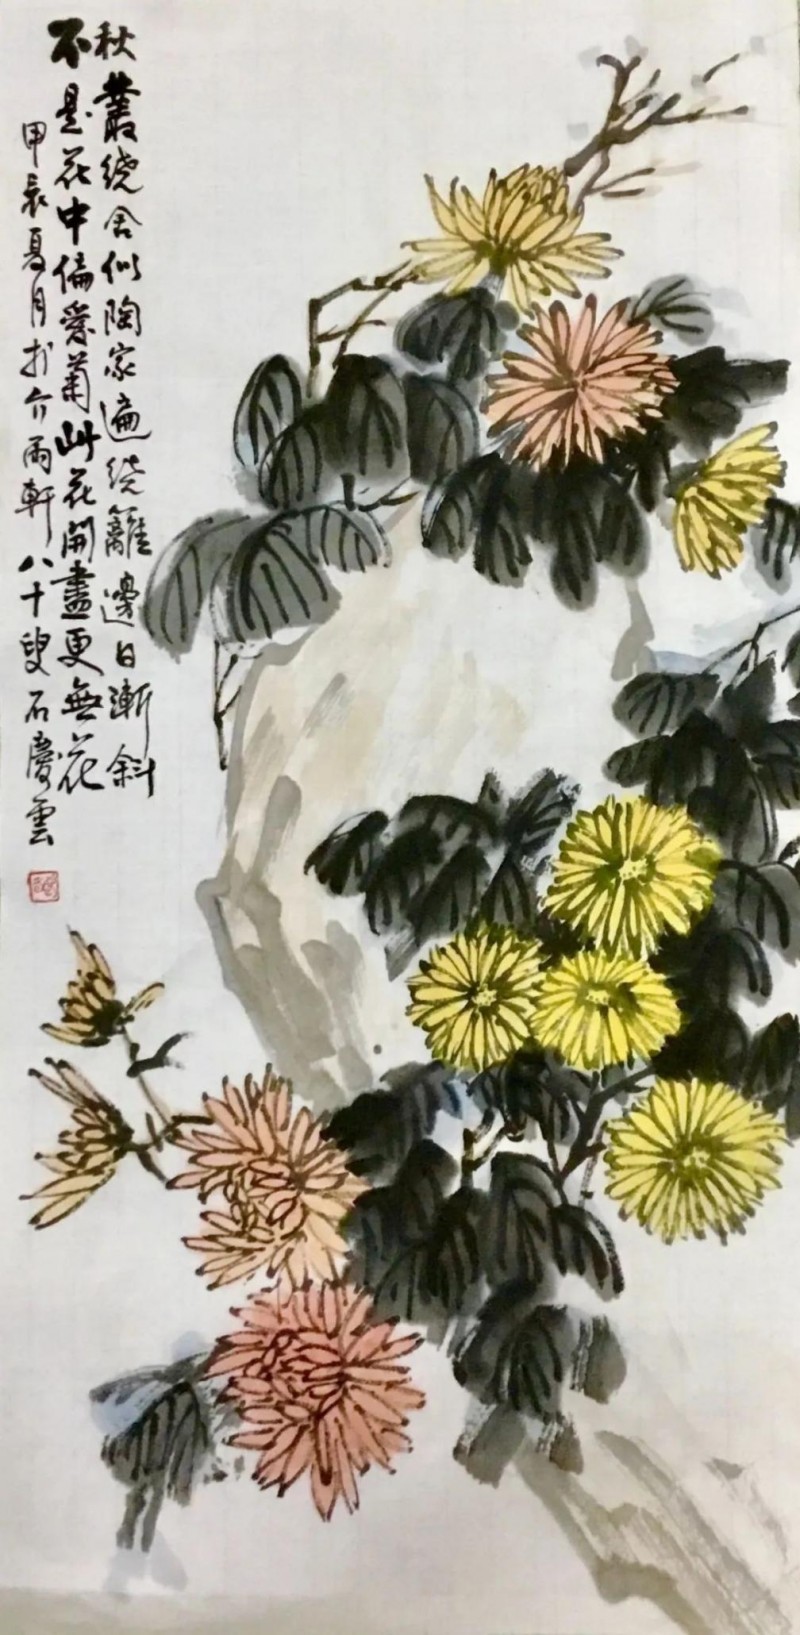 秋叢繞舍似陶家遍繞籬邊日漸斜
不是花中偏愛菊此花開盡更無花
甲辰夏月於介雨軒八十叟石慶雲